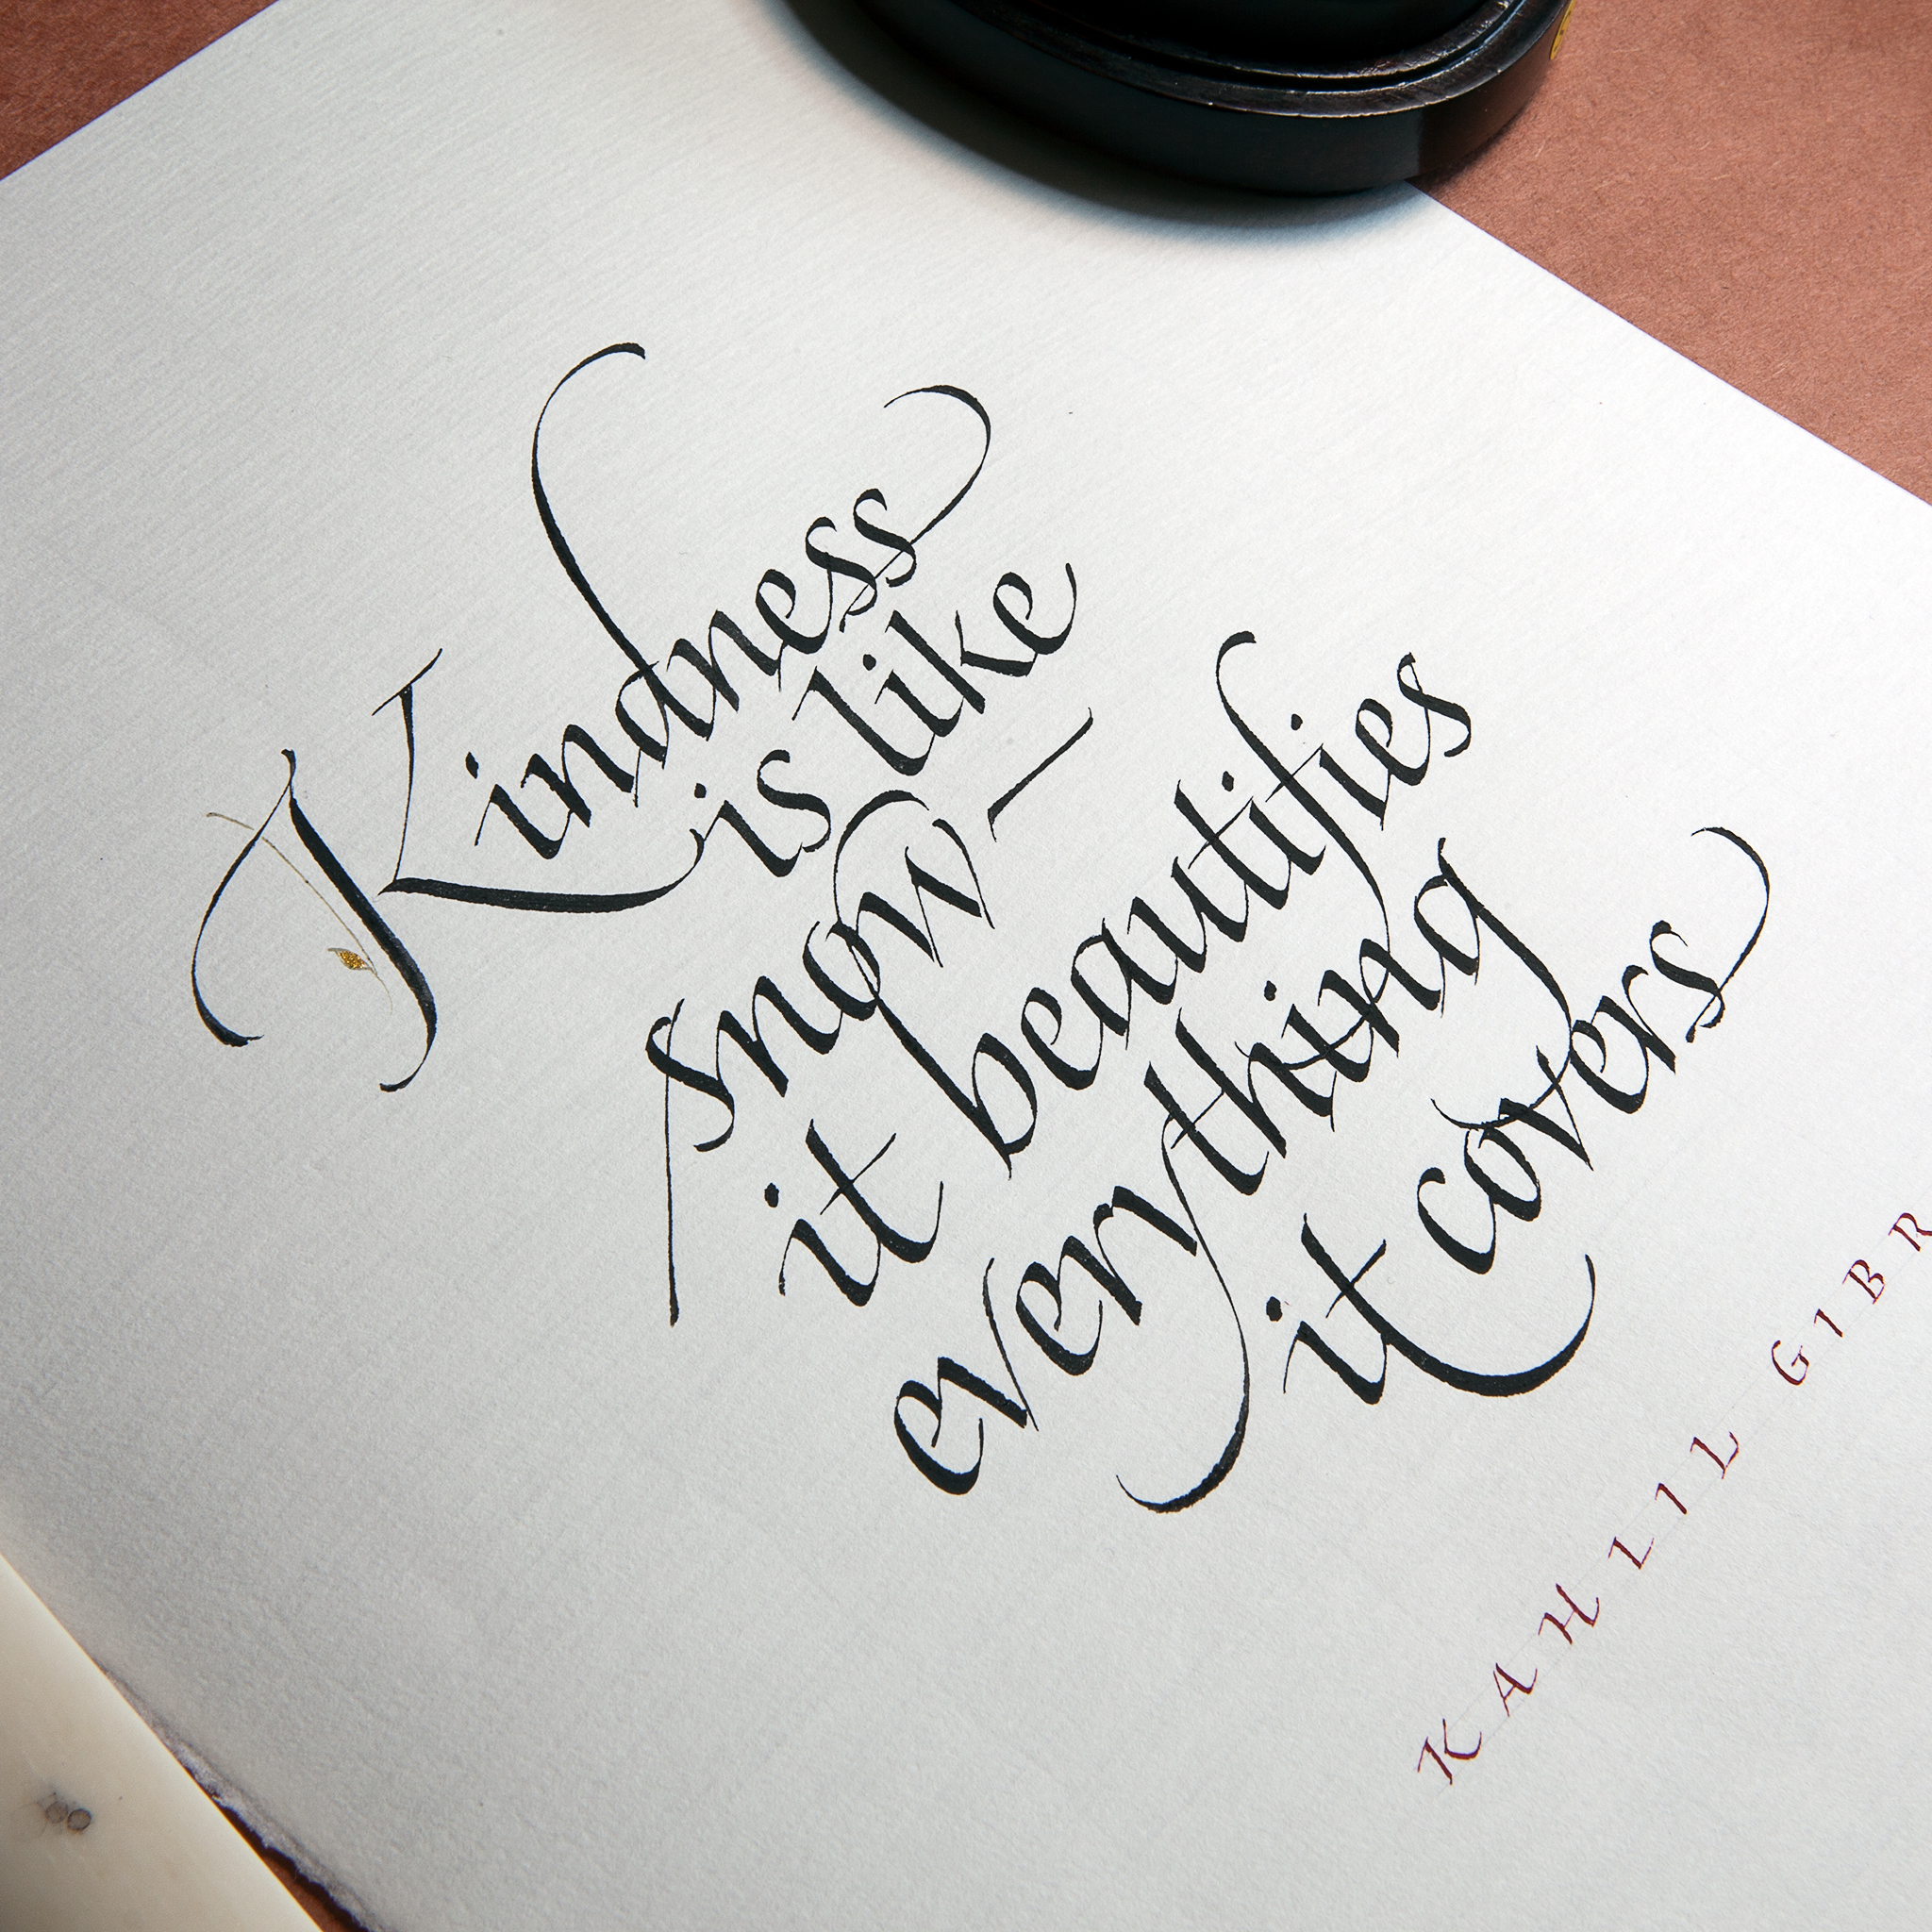 Kindness
is like
snow —
it beautifies
everything
it covers
KAHLIL GIBR